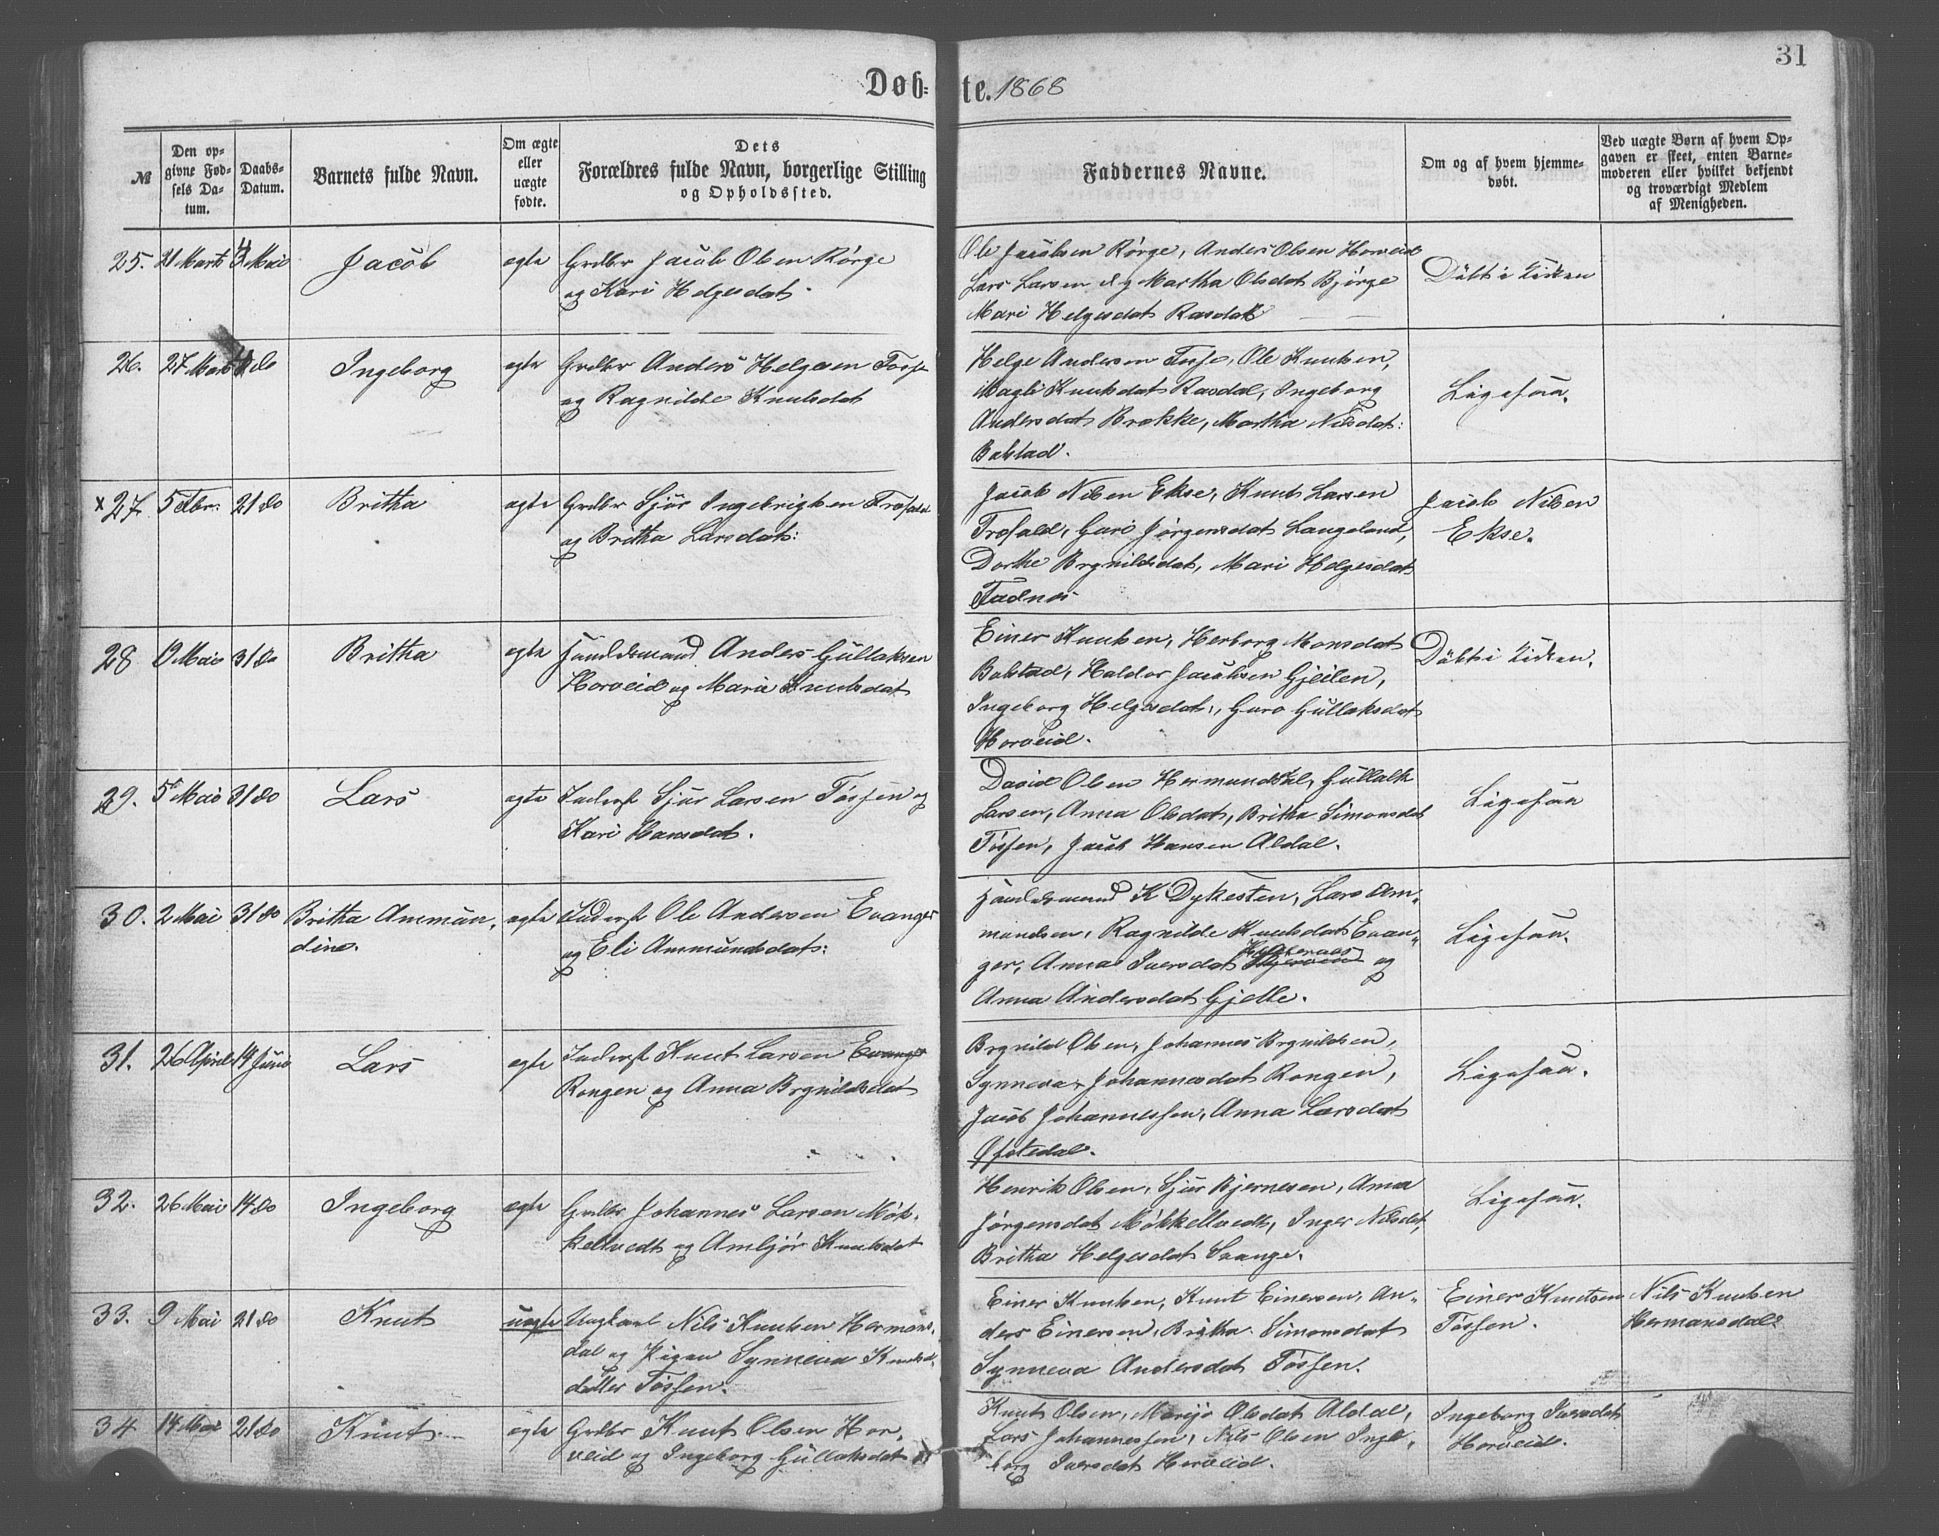 31
Døb-te. 1868
№
Den op-
givne Fød-
sels Da-
tum.
Daabs-
Datum.
Barnets fulde Navn.
Om ægte
eller
uægte
fødte.
Dets
Forældres fulde Navn, borgerlige Stilling
og Opholdssted.
Faddernes Navne.
Om og af hvem hjemme-
døbt.
Ved uægte Børn af hvem Op-
gaven er skeet, enten Barne-
moderen eller hvilket bekjendt
og troværdigt Medlem
af Menigheden.
25. 21 Marts Mai Jacob ægte Grdbr Jacob Olsen Rørge
og Kari Helgesdat
Ole Jacobsen Rørge, Anders Olsen Horveid
Lars Larsen og Martha Olsdat Bjørge
Mari Helgesdat Rasdal
Döbt i Kirken
26. 27 Marts do Ingeborg ægte Grdbr Anders Helgesen Fosse
og Ragnilde Knutsdat
Helge Andersen Fosse, Ole Knutsen,
Magli Knutsdat Rasdal, Ingeborg
Andersdat Brekke, Martha Nilsdat:
Bolstad.
Ligesaa.
x 27. 5 Febr. 21 do Britha ægte Grdbr Sjür Ingebrigtsen Trefald
og Britha Larsdat:
Jacob Nilsen Ekse, Knut Larsen
Trefald, Guri Jörgensdat Langeland,
Dorthe Brynildsdat, Mari Helgesdat
Fadnes
Jacob Nilsen
Ekse.
28 Mai 31 do Britha ægte Handelsmand Anders Güllaksen
Horveid og Marie Knutsdat
Einer Knutsen, Herborg Monsdat
Bolstad, Haldor Jacobsen Gjeilen,
Ingeborg Helgesdat:, Guro Güllaksdat
Horveid.
Döbt i Kirken.
29. 5 Mai 31 do Lars ægte Inderst Sjur Larsen Tössen og
Kari Hansdat.
David Olsen Hermundsdal, Güllak
Larsen, Anna Olsdat, Britha Simonsdat
Tössen, Jacob Hansen Aldal.
Ligesaa
30. 2 Mai 31 do Britha Ammün,
dine. ægte Inderst Ole Andersen Evanger
og Eli Ammundsdat:
Handelsmand K Dykesten, Lars Am-
mundsen, Ragnilde Knutsdat Evan-
ger, Anna Iversdat og
Anna Andersdat Gjelle.
Ligesaa.
31. 26 April 14 Juni Lars ægte Inderst Knut Larsen Evanger
Rongen og Anna Brynildsdat
Brynild Olsen, Johannes Brynildsen,
Synneva Johannesdat Rongen,
Jacob Johannessen, Anna Larsdat
Øfstedal.
Ligesaa.
32. 26 Mai 14 do Ingeborg ægte Grdbr Johannes Larsen Møk-
kelvedt og Ambjør Knutsdat
Henrik Olsen, Sjur Bjernesen, Anna
Jörgensdat Møkkelvedt, Inger Nilsdat,
Britha Helgesdat Svange.
Ligesaa.
33. 9 Mai 21 do Knut uægte Ungkarl Nils Knutsen Hermans-
dal og Pigen Synneva Knuts-
datter Tössen.
Einer Knutsen, Knut Einersen, An-
ders Einersen, Britha Simonsdat
Synneva Andersdat Tössen.
Einer Knutsen
Tössen.
Nils Knutsen
Hermansdal
34 14 Mai 21 do Knut ægte Grdbr Knut Olsen Hor-
veid og Ingeborg Güllaksdat
Knut Olsen, Olsdat Aldal,
Lars Johannessen, Nils Olsen Inge-
borg Iversdat Horveid.
Ingeborg Iversdat
Horveid.